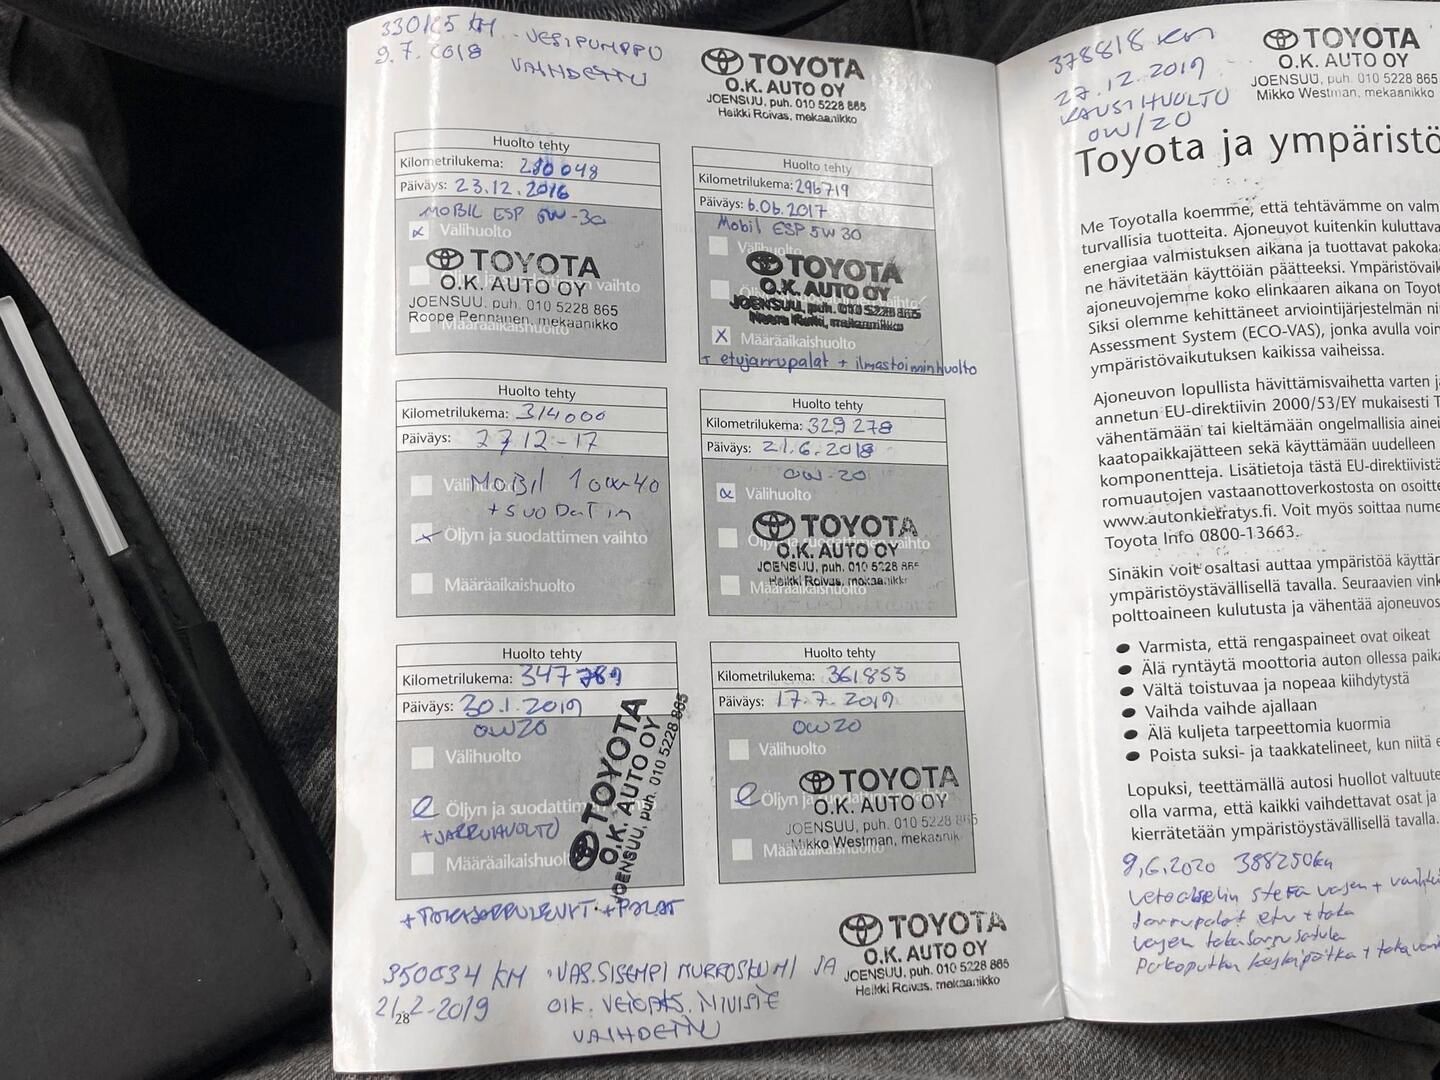 330125 KM - VESIPUMPPU
9.7.2018 VAIHDETTU
TOYOTA
O.K. AUTO OY
JOENSUU, puh. 010 5228 865
Heikki Roivas, mekaanikko
Huolto tehty
Kilometrilukema: 280048
Päiväys: 23.12.2016
MOBIL ESP 0W-30
x Välihuolto
TOYOTA
Öljyn ja suodattimen vaihto
O.K. AUTO OY
JOENSUU, puh. 010 5228 865
Roope Pennanen, mekaanikko
Määräaikaishuolto
Huolto tehty
Kilometrilukema: 296719
Päiväys: 6.06.2017
Mobil ESP 5W30
Välihuolto
TOYOTA
O.K. AUTO OY
JOENSUU, puh. 010 5228 865
mekaanikko
X Määräaikaishuolto
+ etujarrupalat + ilmastoiminhuolto
Huolto tehty
Kilometrilukema: 314000
Päiväys: 27 12 -17
Välihuolto
MOBIL 10W-40
+ SUODATIN
x Öljyn ja suodattimen vaihto
Määräaikaishuolto
Huolto tehty
Kilometrilukema: 329278
Päiväys: 21.6.2018
0W-20
x Välihuolto
TOYOTA
Öljyn ja suodattimen vaihto
O.K. AUTO OY
JOENSUU, puh. 010 5228 865
Heikki Roivas, mekaanikko
Määräaikaishuolto
Huolto tehty
Kilometrilukema: 347789
Päiväys: 30.1.2019
0W20
Välihuolto
Öljyn ja suodattimen
+JARRUHUOLTO
Määräaikaishuolto
TOYOTA
O.K. AUTO OY
JOENSUU, puh. 010 5228 865
+TAKAJARRULEVYT +PALAT
Huolto tehty
Kilometrilukema: 361853
Päiväys: 17.7.2019
0W20
Välihuolto
TOYOTA
Öljyn ja suodattimen vaihto
O.K. AUTO OY
JOENSUU, puh. 010 5228 865
Mikko Westman, mekaanik
Määräaikaishuolto
350034 KM VAS.SISEMPI MURROSKUMI JA
21.2-2019 OIK. VETOAKS. NIVISTE
VAIHDETTU
TOYOTA
O.K. AUTO OY
JOENSUU, puh. 010 5228 865
Heikki Roivas, mekaanikko
28
378818 KM
27.12.2019
KAUSIHUOLTO
0W/20
TOYOTA
O.K. AUTO OY
JOENSUU, puh. 010 5228 865
Mikko Westman, mekaanikko
Toyota ja ympäristö
Me Toyotalla koemme, että tehtävämme on valm
turvallisia tuotteita. Ajoneuvot kuitenkin kuluttava
energiaa valmistuksen aikana ja tuottavat pakoka
ne hävitetään käyttöiän päätteeksi. Ympäristövaik
ajoneuvojemme koko elinkaaren aikana on Toyot
Siksi olemme kehittäneet arviointijärjestelmän ni
Assessment System (ECO-VAS), jonka avulla voim
ympäristövaikutuksen kaikissa vaiheissa.
Ajoneuvon lopullista hävittämisvaihetta varten j
annetun EU-direktiivin 2000/53/EY mukaisesti T
vähentämään tai kieltämään ongelmallisia ainei
kaatopaikkajätteen sekä käyttämään uudelleen
komponentteja. Lisätietoja tästä EU-direktiivistä
romuautojen vastaanottoverkostosta on osoitte
www.autonkierratys.fi. Voit myös soittaa nume
Toyota Info 0800-13663.
Sinäkin voit osaltasi auttaa ympäristöä käyttär
ympäristöystävällisellä tavalla. Seuraavien vink
polttoaineen kulutusta ja vähentää ajoneuvos
● Varmista, että rengaspaineet ovat oikeat
● Älä ryntäytä moottoria auton ollessa paika
● Vältä toistuvaa ja nopeaa kiihdytystä
● Vaihda vaihde ajallaan
● Älä kuljeta tarpeettomia kuormia
● Poista suksi- ja taakkatelineet, kun niitä e
Lopuksi, teettämällä autosi huollot valtuute
olla varma, että kaikki vaihdettavat osat ja
kierrätetään ympäristöystävällisellä tavalla.
9.6.2020 388250km
Vetoakselin vasen +
Jarrupalat etu + taka
Vasen takajarrusatula
Pakoputken keskipötkö + taka